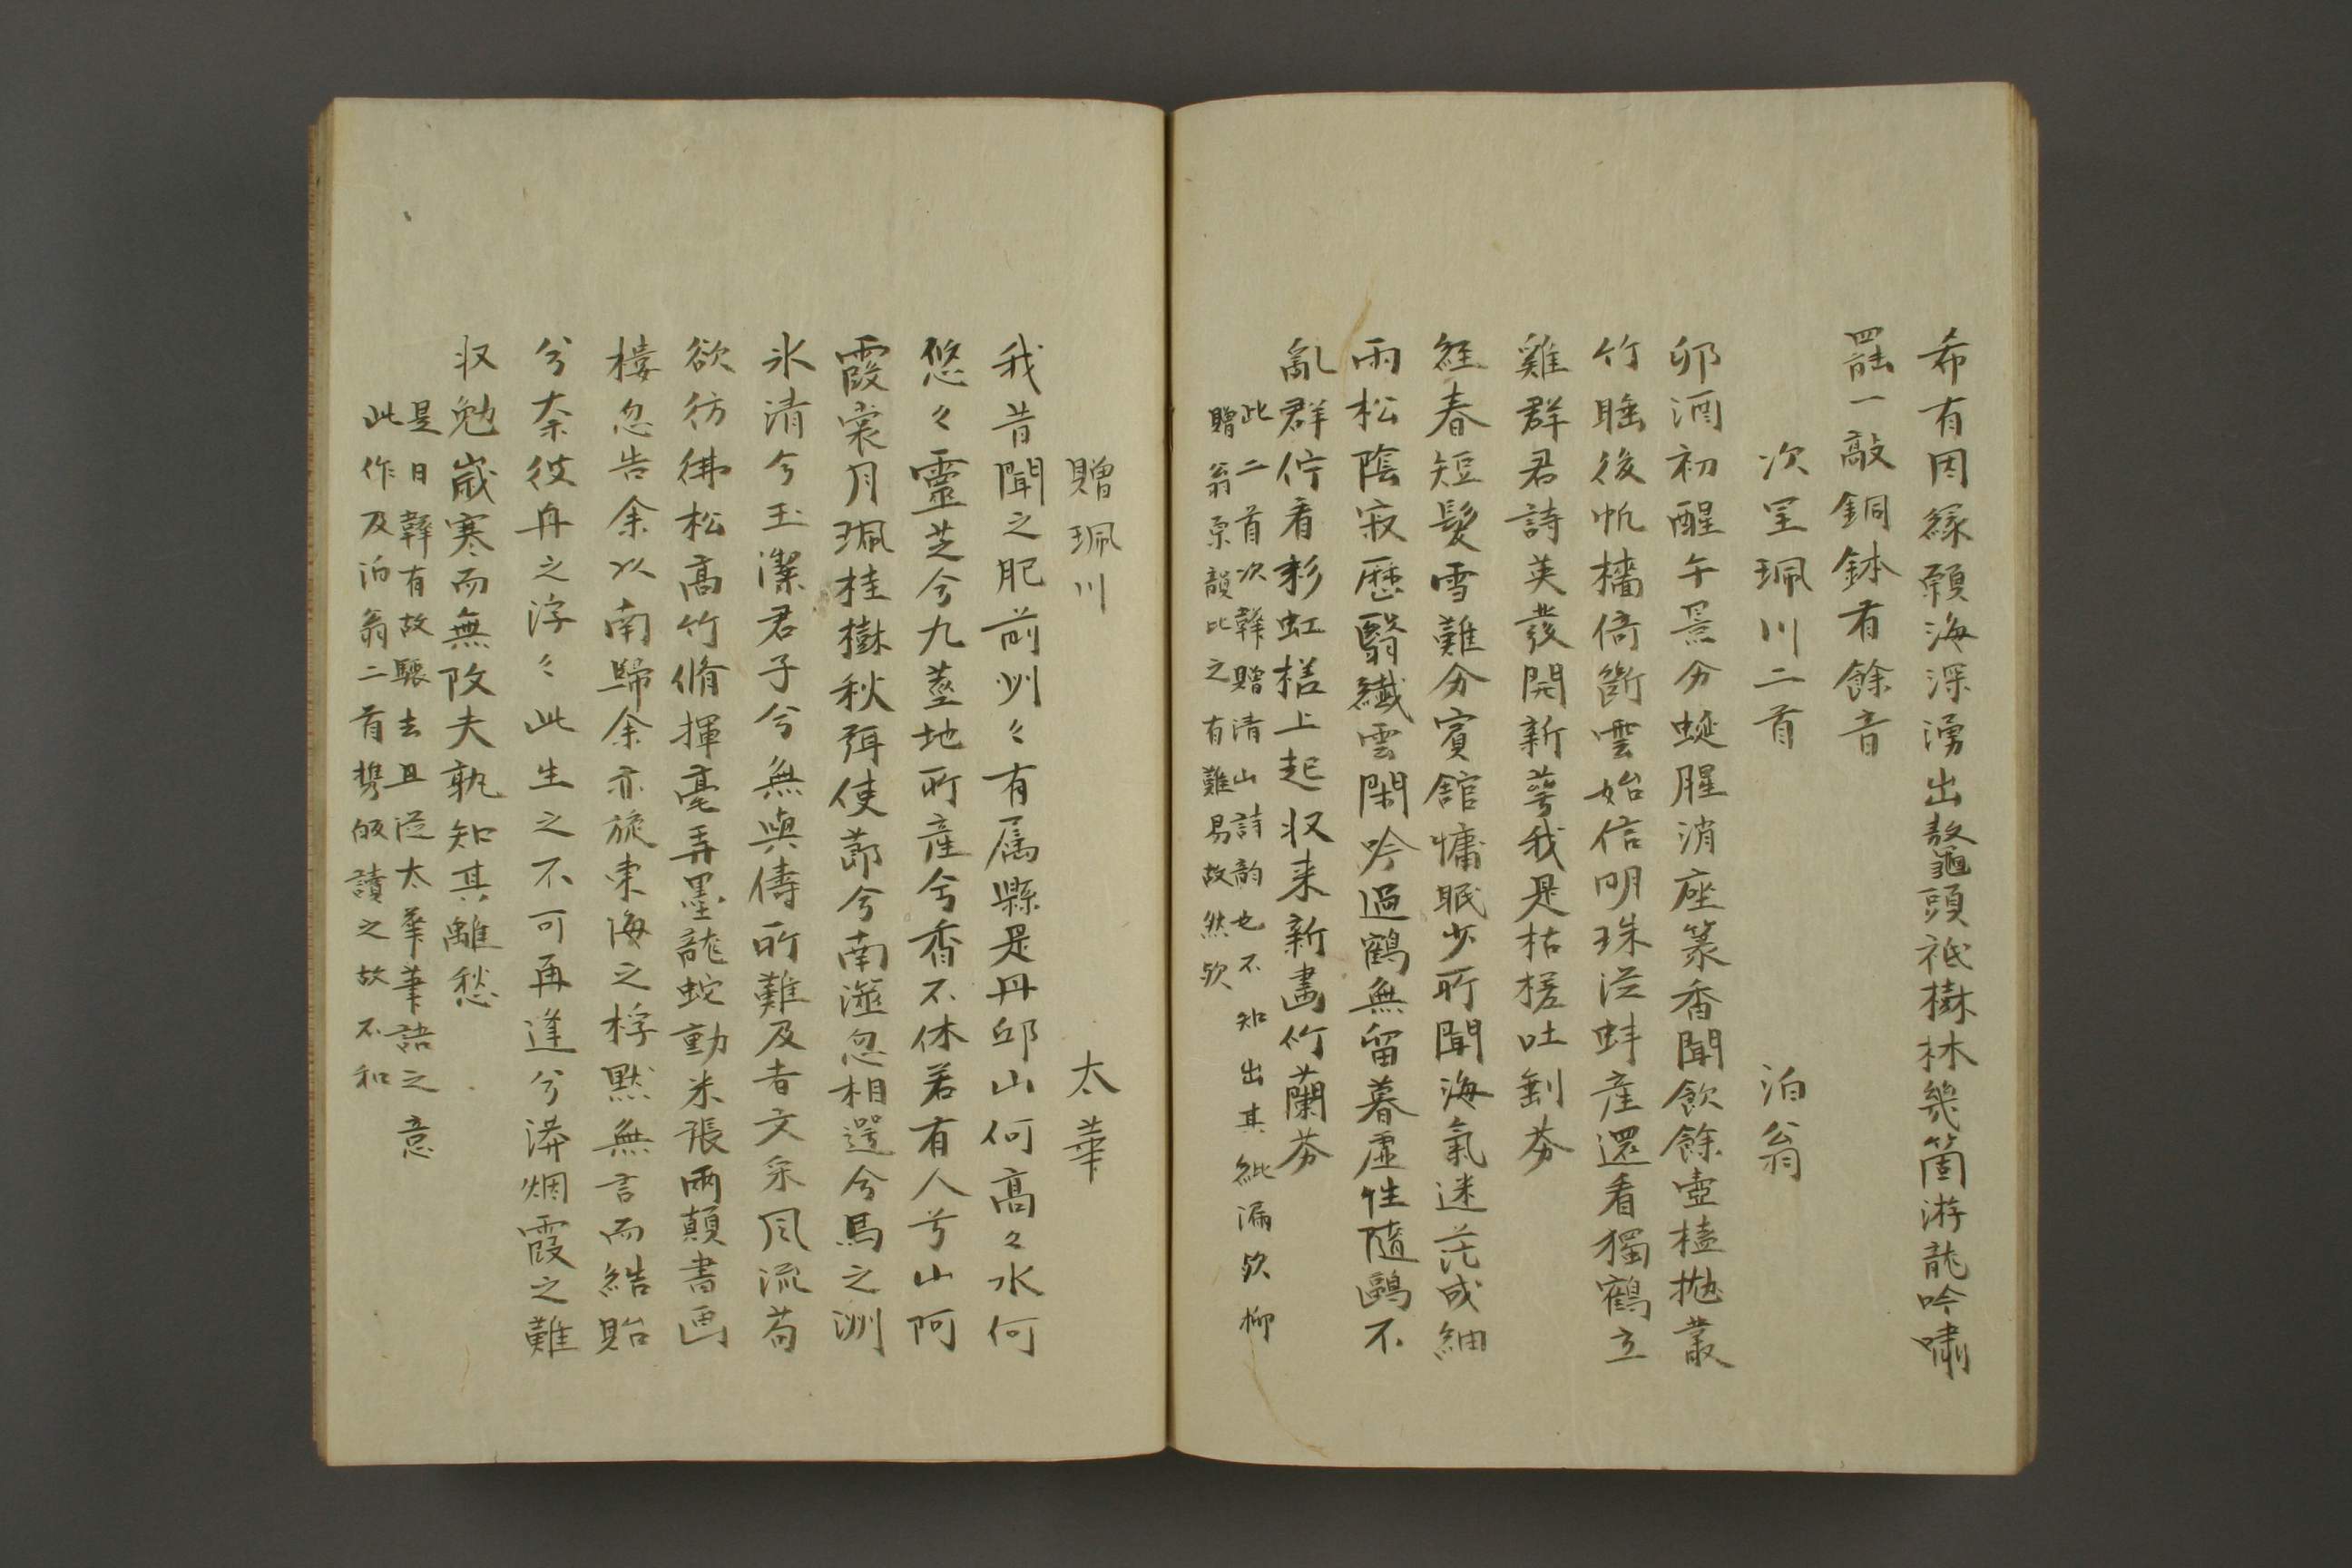 希有因縁願海深湧出鼇頭祇樹林幾箇游龍吟嘯
罷一敲銅鉢有餘音
次呈珮川二首 泊翁
卯酒初醒午景分蜒腥消座篆香聞飲餘壺榼拋叢
竹睡後帆檣倚斷雲始信明珠従蚌産還看獨鶴立
雞群君詩英發開新萼我是枯槎吐剩芬
経春短髮雪難分賓舘慵眠少所聞海氣迷茫成細
雨松陰寂歴翳纖雲閑吟過鶴無留暮虚性隨鷗不
亂群佇看彩虹槎上起収来新畫竹蘭芬
此二首次韓贈清山詩韵也不知出其紕漏欤柳
贈翁原韻比之有難易故然欤
贈珮川 太華
我昔聞之肥前州々有属縣是丹邱山何高々水何
悠々靈芝兮九莖地所産兮香不休若有人兮山阿
霞裳月珮桂樹秋弭使莭兮南滋忽相遌兮馬之洲
氷清兮玉潔君子兮無與儔所難及者文采風流苟
欲彷彿松高竹脩揮毫弄墨龍蛇動米張兩顛書画
樓忽告余以南歸余亦旋東海之桴黙無言而結貽
兮奈彼舟之浮々此生之不可再逢兮漭烟霞之難
収勉嵗寒而無改夫孰知其離愁
是日韓有故驟去且従太華筆語之意
此作及泊翁二首携皈讀之故不和